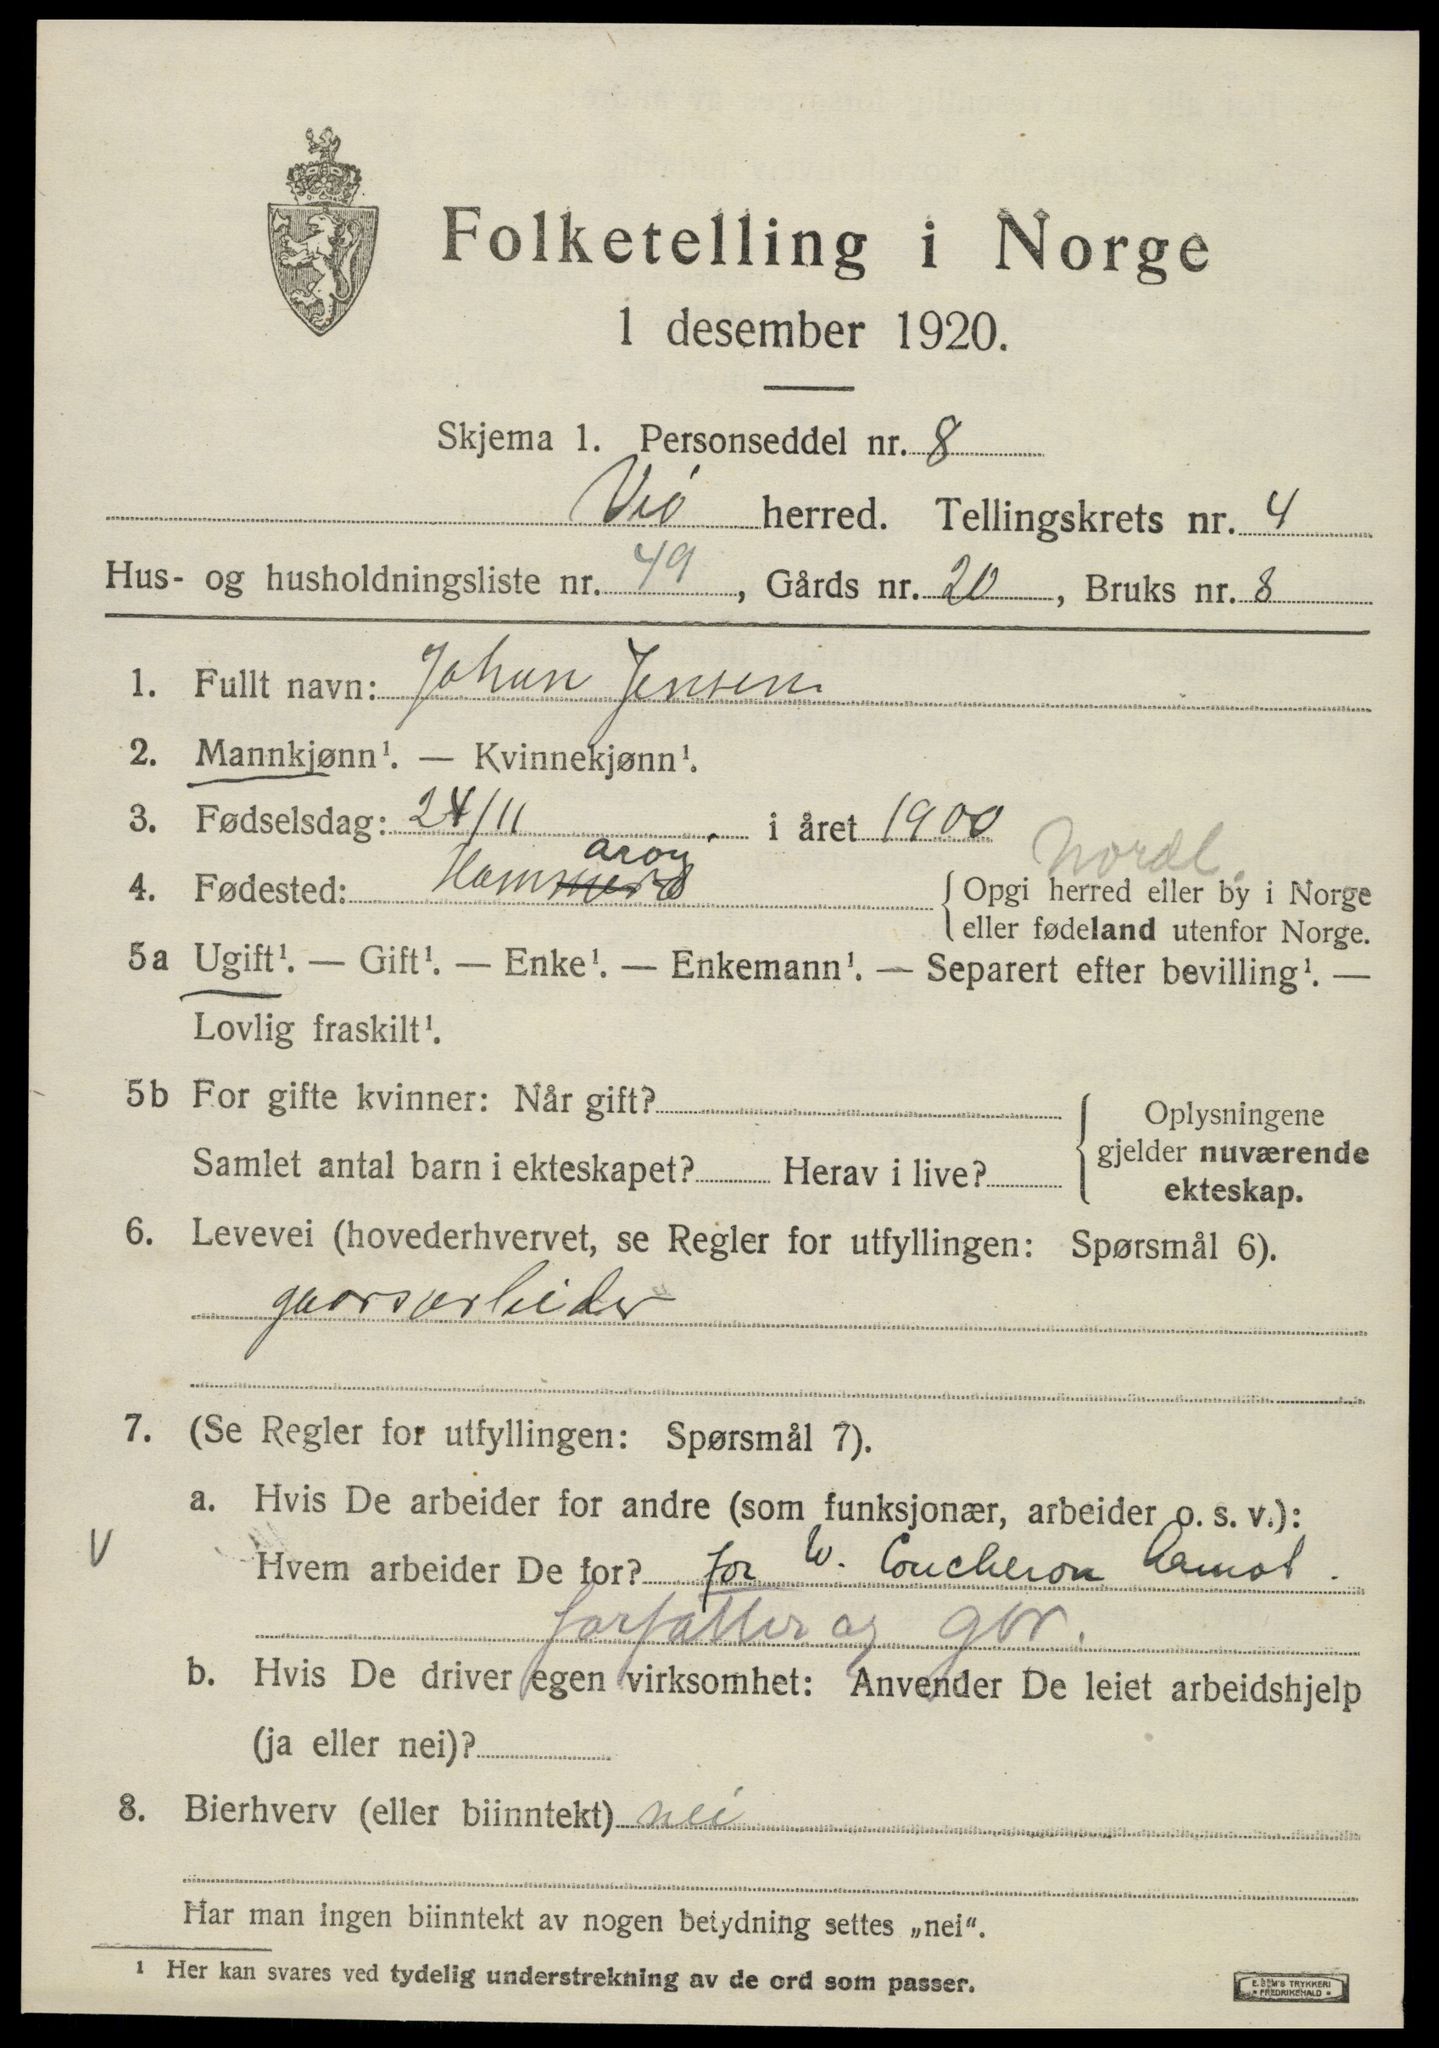 Folketelling i Norge
1 desember 1920.
Skjema 1. Personseddel nr. 8
Veö herred. Tellingskrets nr. 4
Hus- og husholdningsliste nr. 49, Gårds nr. 20, Bruks nr. 8
1. Fullt navn: Johan Jensen
2. Mannkjønn¹. — Kvinnekjønn¹.
3. Fødselsdag: 24/11 i året 1900
Nordl.
4. Fødested: Hammarøy {Opgi herred eller by i Norge
eller fødeland utenfor Norge.
5a Ugift¹. — Gift¹. — Enke¹. — Enkemann¹. — Separert efter bevilling¹. —
Lovlig fraskilt¹.
5b For gifte kvinner: Når gift? { Oplysningene
gjelder nuværende
ekteskap.
Samlet antal barn i ekteskapet? Herav i live?
6. Levevei (hovederhvervet, se Regler for utfyllingen: Spørsmål 6).
gaarsarbeider
7. (Se Regler for utfyllingen: Spørsmål 7).
a. Hvis De arbeider for andre (som funksjonær, arbeider o. s. v.):
V Hvem arbeider De for? for W. Coucheron Aamot.
forfatter og gbr.
b. Hvis De driver egen virksomhet: Anvender De leiet arbeidshjelp
(ja eller nei)?
8. Bierhverv (eller biinntekt) nei
Har man ingen biinntekt av nogen betydning settes „nei“.
¹ Her kan svares ved tydelig understrekning av de ord som passer.
E. SEM'S TRYKKERI
• FREDRIKSHALD •